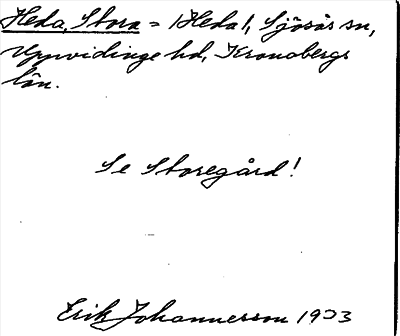 Heda, Stora = (Heda), Sjösås sn,
Uppvidinge hd, Kronobergs
län.
Se Storegård!
Erik Johannesson 1933